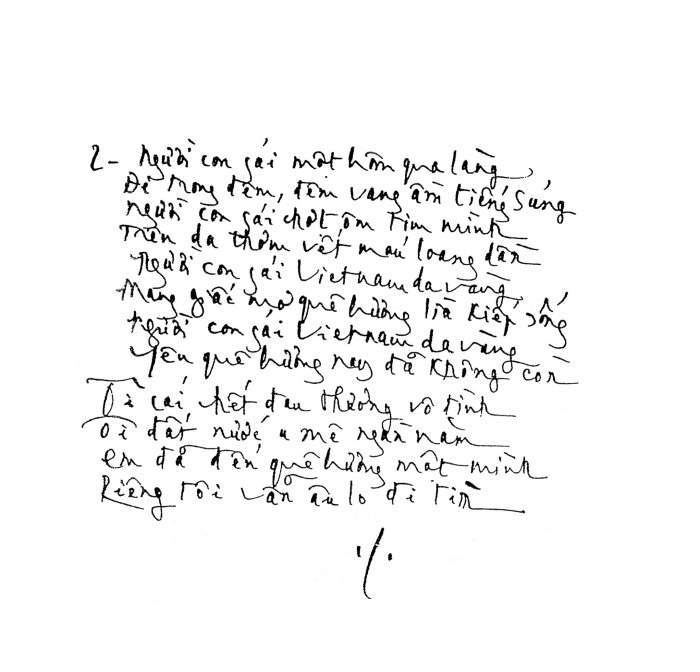 2- Người con gái một hôm qua làng,
Đi trong đêm, đêm vang ầm tiếng súng
Người con gái chợt ôm tim mình
Trên da thơm vết máu loang dần
Người con gái Việt Nam da vàng,
Mang giấc mơ quê hương lìa kiếp sống
Người con gái Việt Nam da vàng
Yêu quê hương nay đã không còn
Ôi cái chết đau thương vô tình
Ôi đất nước u mê ngàn năm
Em đã đến quê hương một mình
Riêng tôi vẫn âu lo đi tìm
./.